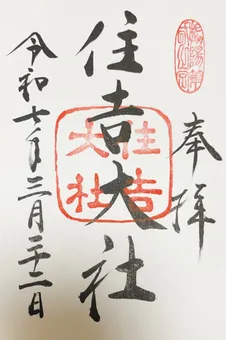 奉拝
住吉大社
住吉大社
令和七年三月二十二日